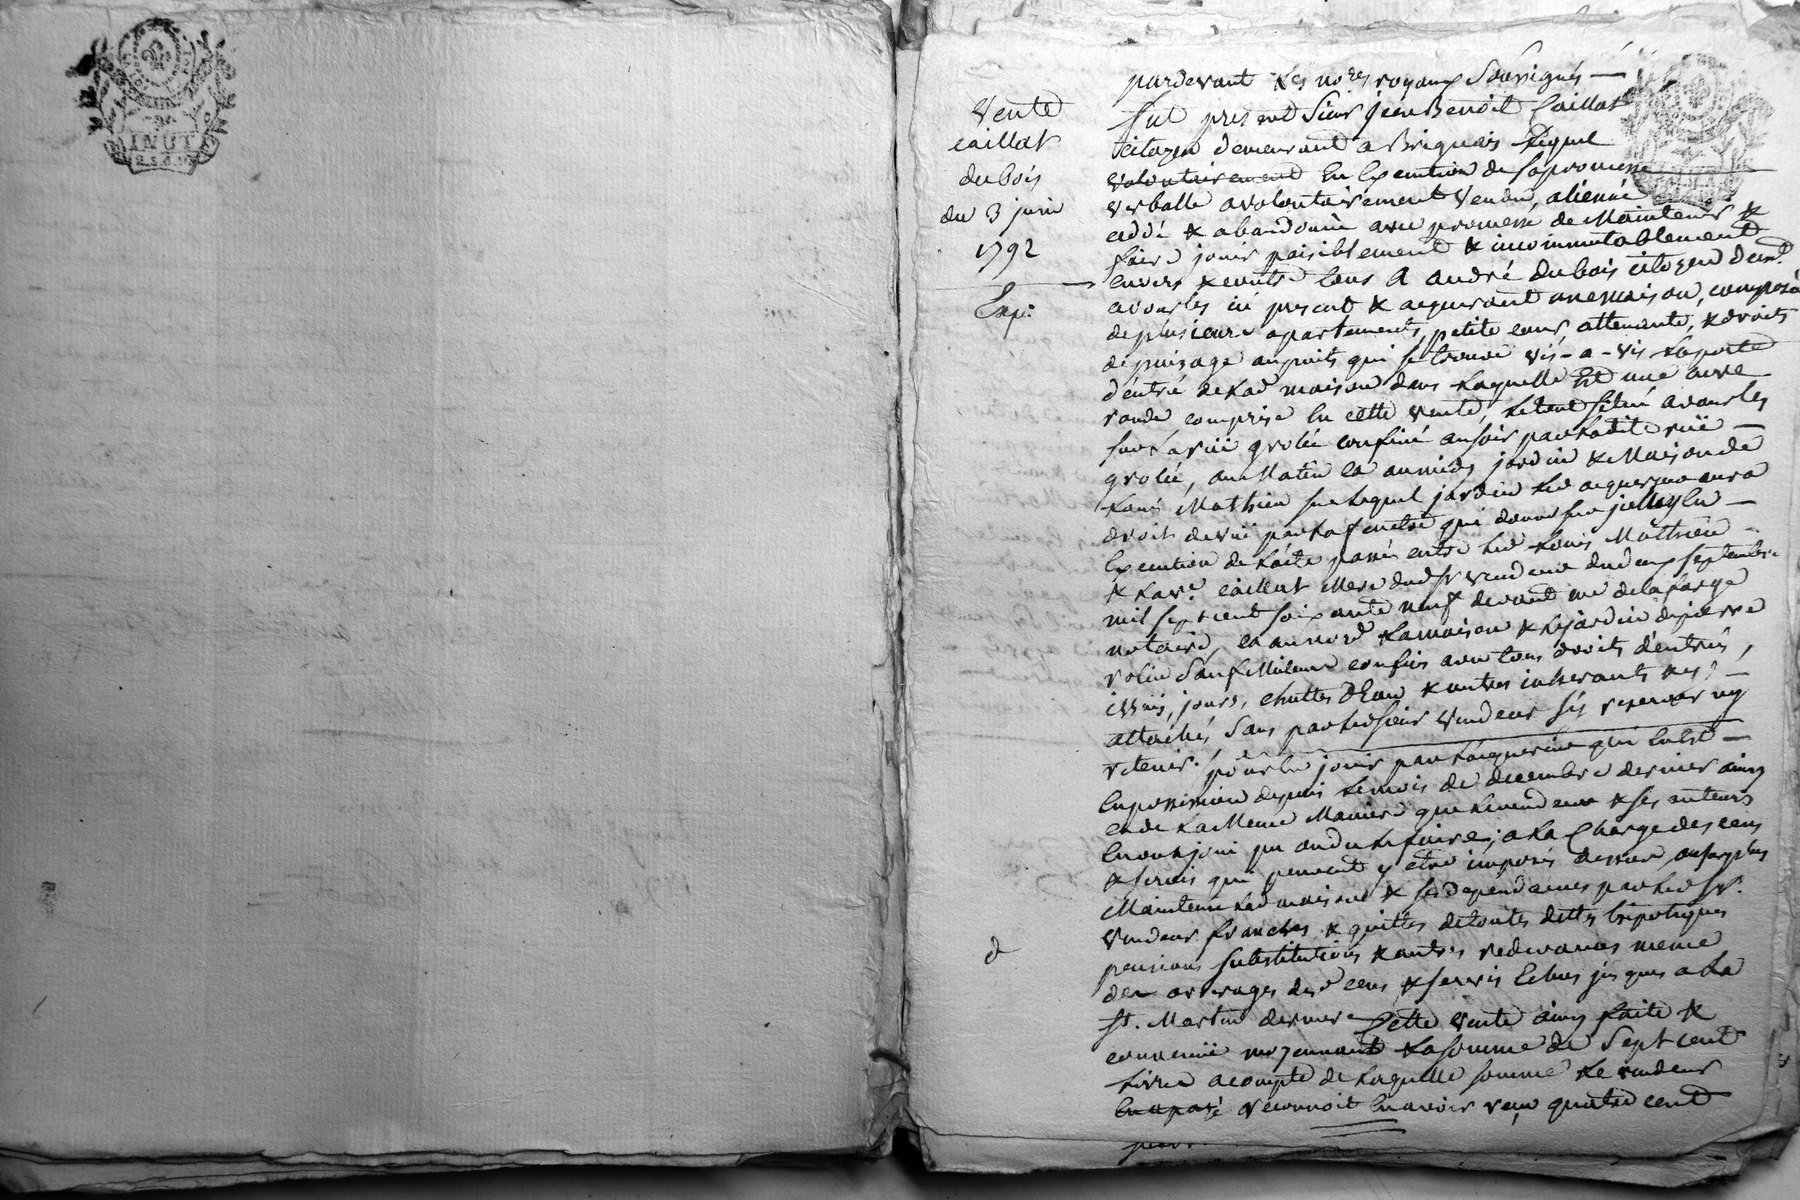 MINUT
2.s.8.d
Vente
caillat
dubois
du 3 juin
1792
Exp:
pardevant Les no.res royaux Soussignés —
fut present Sieur jean Benoit Caillat
citoyen demeurant a Brignais Lequel
volontairement En Execution de sa promesse
verballe a volontairement Vendu, aliené
cedé & abandonné avec promesse de Maintenir &
faire jouir paisiblement & incommutablement
envers & contre tous A André dubois citoyen dem.t
a vourles ici present & acquerant une maison, composée
de plusieurs apartements, petite cour attenante, & droits
de puisage au puits qui se trouve vis-a-vis La porte
d'entrée de Lad maison dans Laquelle Est une cuve
ronde comprise En cette Vente, Le tout situé a vourles
sous La ruë grolée confiné au soir par Ladite ruë —
grolée, au Matin et au midy jardin & Maison de
Louis Mathieu sur Lequel jardin Led acquereur aura
droit de vüe par La fenetre qui donne sur jcelluy En —
Execution de L'acte passé entre Led Louis Mathieu —
& La v.e caillat Mere dud Sr vendeur du deux septembre
mil sept cent soixante neuf devant me delaforge
notaire, et au nord La maison & Le jardin de pierre
rolin Sauf Meilleurs confins avec tous droits d'entrées,
issües, jours, chuttes d'Eau & autres inherants & y —
attachés Sans par Led sieur Vendeur s'y reserver ny
retenir. pour En jouir par L'acquereur qui En Est —
En possession depuis Le mois de decembre dernier ainsy
et de La Meme Maniere que Le vendeur & ses auteurs
En ont joui pu ou du Le faire; a La Charge des cens
& servis qui peuvent y etre imposés dessus, au surplus
Maintenue Lad maison & ses dependances par Led Sr.
Vendeur franches & quittes de toutes dettes hipoteques
pensions substitutions & autres redevances meme
des arrerages des d cens & servis Echus jusques a La
St. Martin derniere Cette Vente ainsy faite &
convenüe moyennant La somme de Sept cent
Livres a compte de Laquelle somme Le vendeur
reconnoit En avoir reçu quatre cent
d